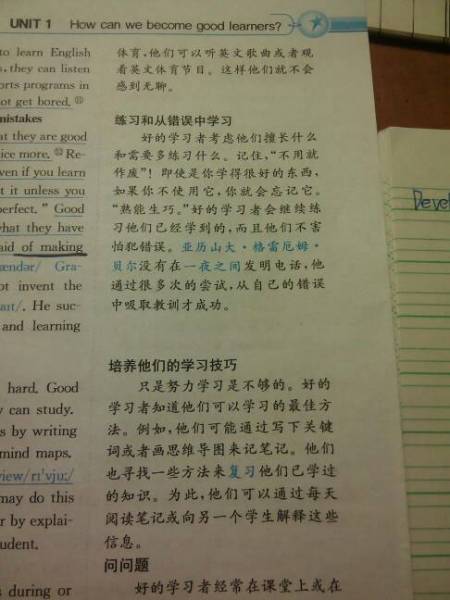 UNIT 1 How can we become good learners?
to learn English
, they can listen
orts programs in
ot get bored.
mistakes
at they are good
ice more. ⑫ Re-
ven if you learn
t it unless you
perfect." Good
what they have
aid of making
ændər/ Gra-
ot invent the
aɪt/. He suc-
and learning
hard. Good
y can study.
s by writing
mind maps.
view/rɪ'vjuː/
may do this
r by explai-
udent.
s during or
体育,他们可以听英文歌曲或者观
看英文体育节目。这样他们就不会
感到无聊。
练习和从错误中学习
好的学习者考虑他们擅长什么
和需要多练习什么。记住,“不用就
作废”! 即使是你学得很好的东西,
如果你不使用它,你就会忘记它。
“熟能生巧。”好的学习者会继续练
习他们已经学到的,而且他们不害
怕犯错误。亚历山大·格雷厄姆·
贝尔没有在一夜之间发明电话,他
通过很多次的尝试,从自己的错误
中吸取教训才成功。
培养他们的学习技巧
只是努力学习是不够的。好的
学习者知道他们可以学习的最佳方
法。例如,他们可能通过写下关键
词或者画思维导图来记笔记。他们
也寻找一些方法来复习他们已学过
的知识。为此,他们可以通过每天
阅读笔记或向另一个学生解释这些
信息。
问问题
好的学习者经常在课堂上或在
Devel